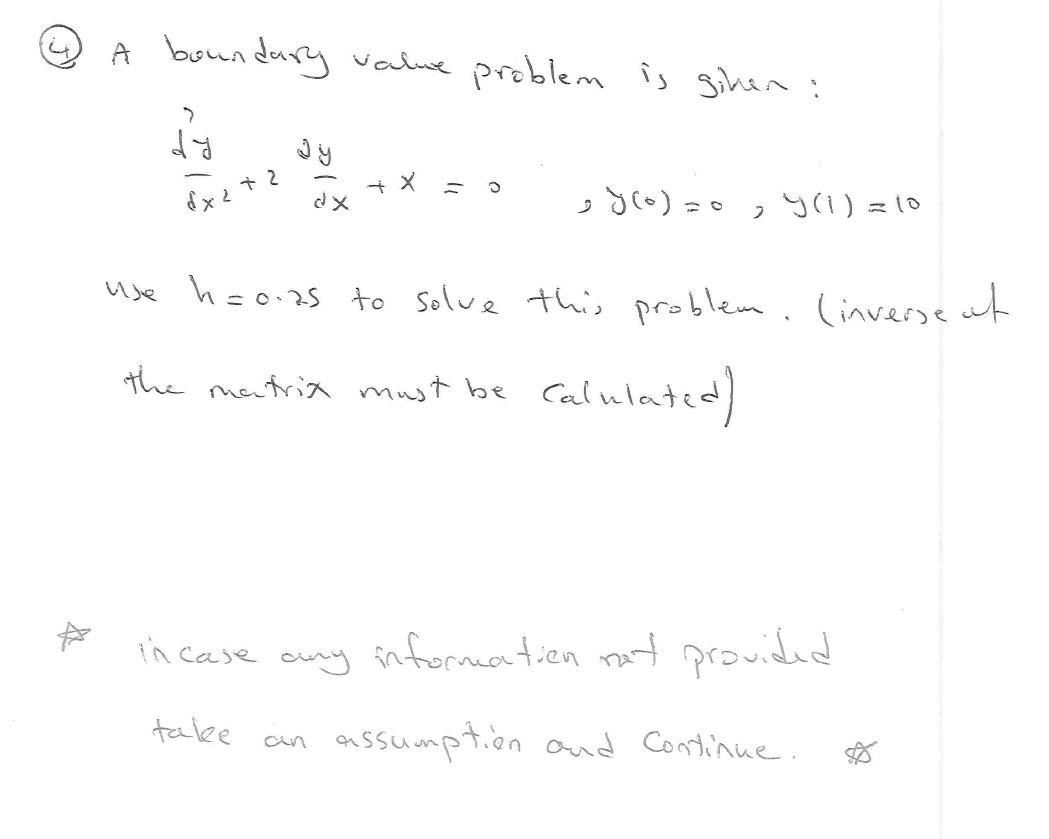 ④ A boundary value problem is given :
d²y/dx² + 2 dy/dx + x = 0 , y(0) = 0 , y(1) = 10
use h = 0.25 to solve this problem. (inverse of
the matrix must be Calulated)
☆ incase any information not provided
take an assumption and Continue. ☆